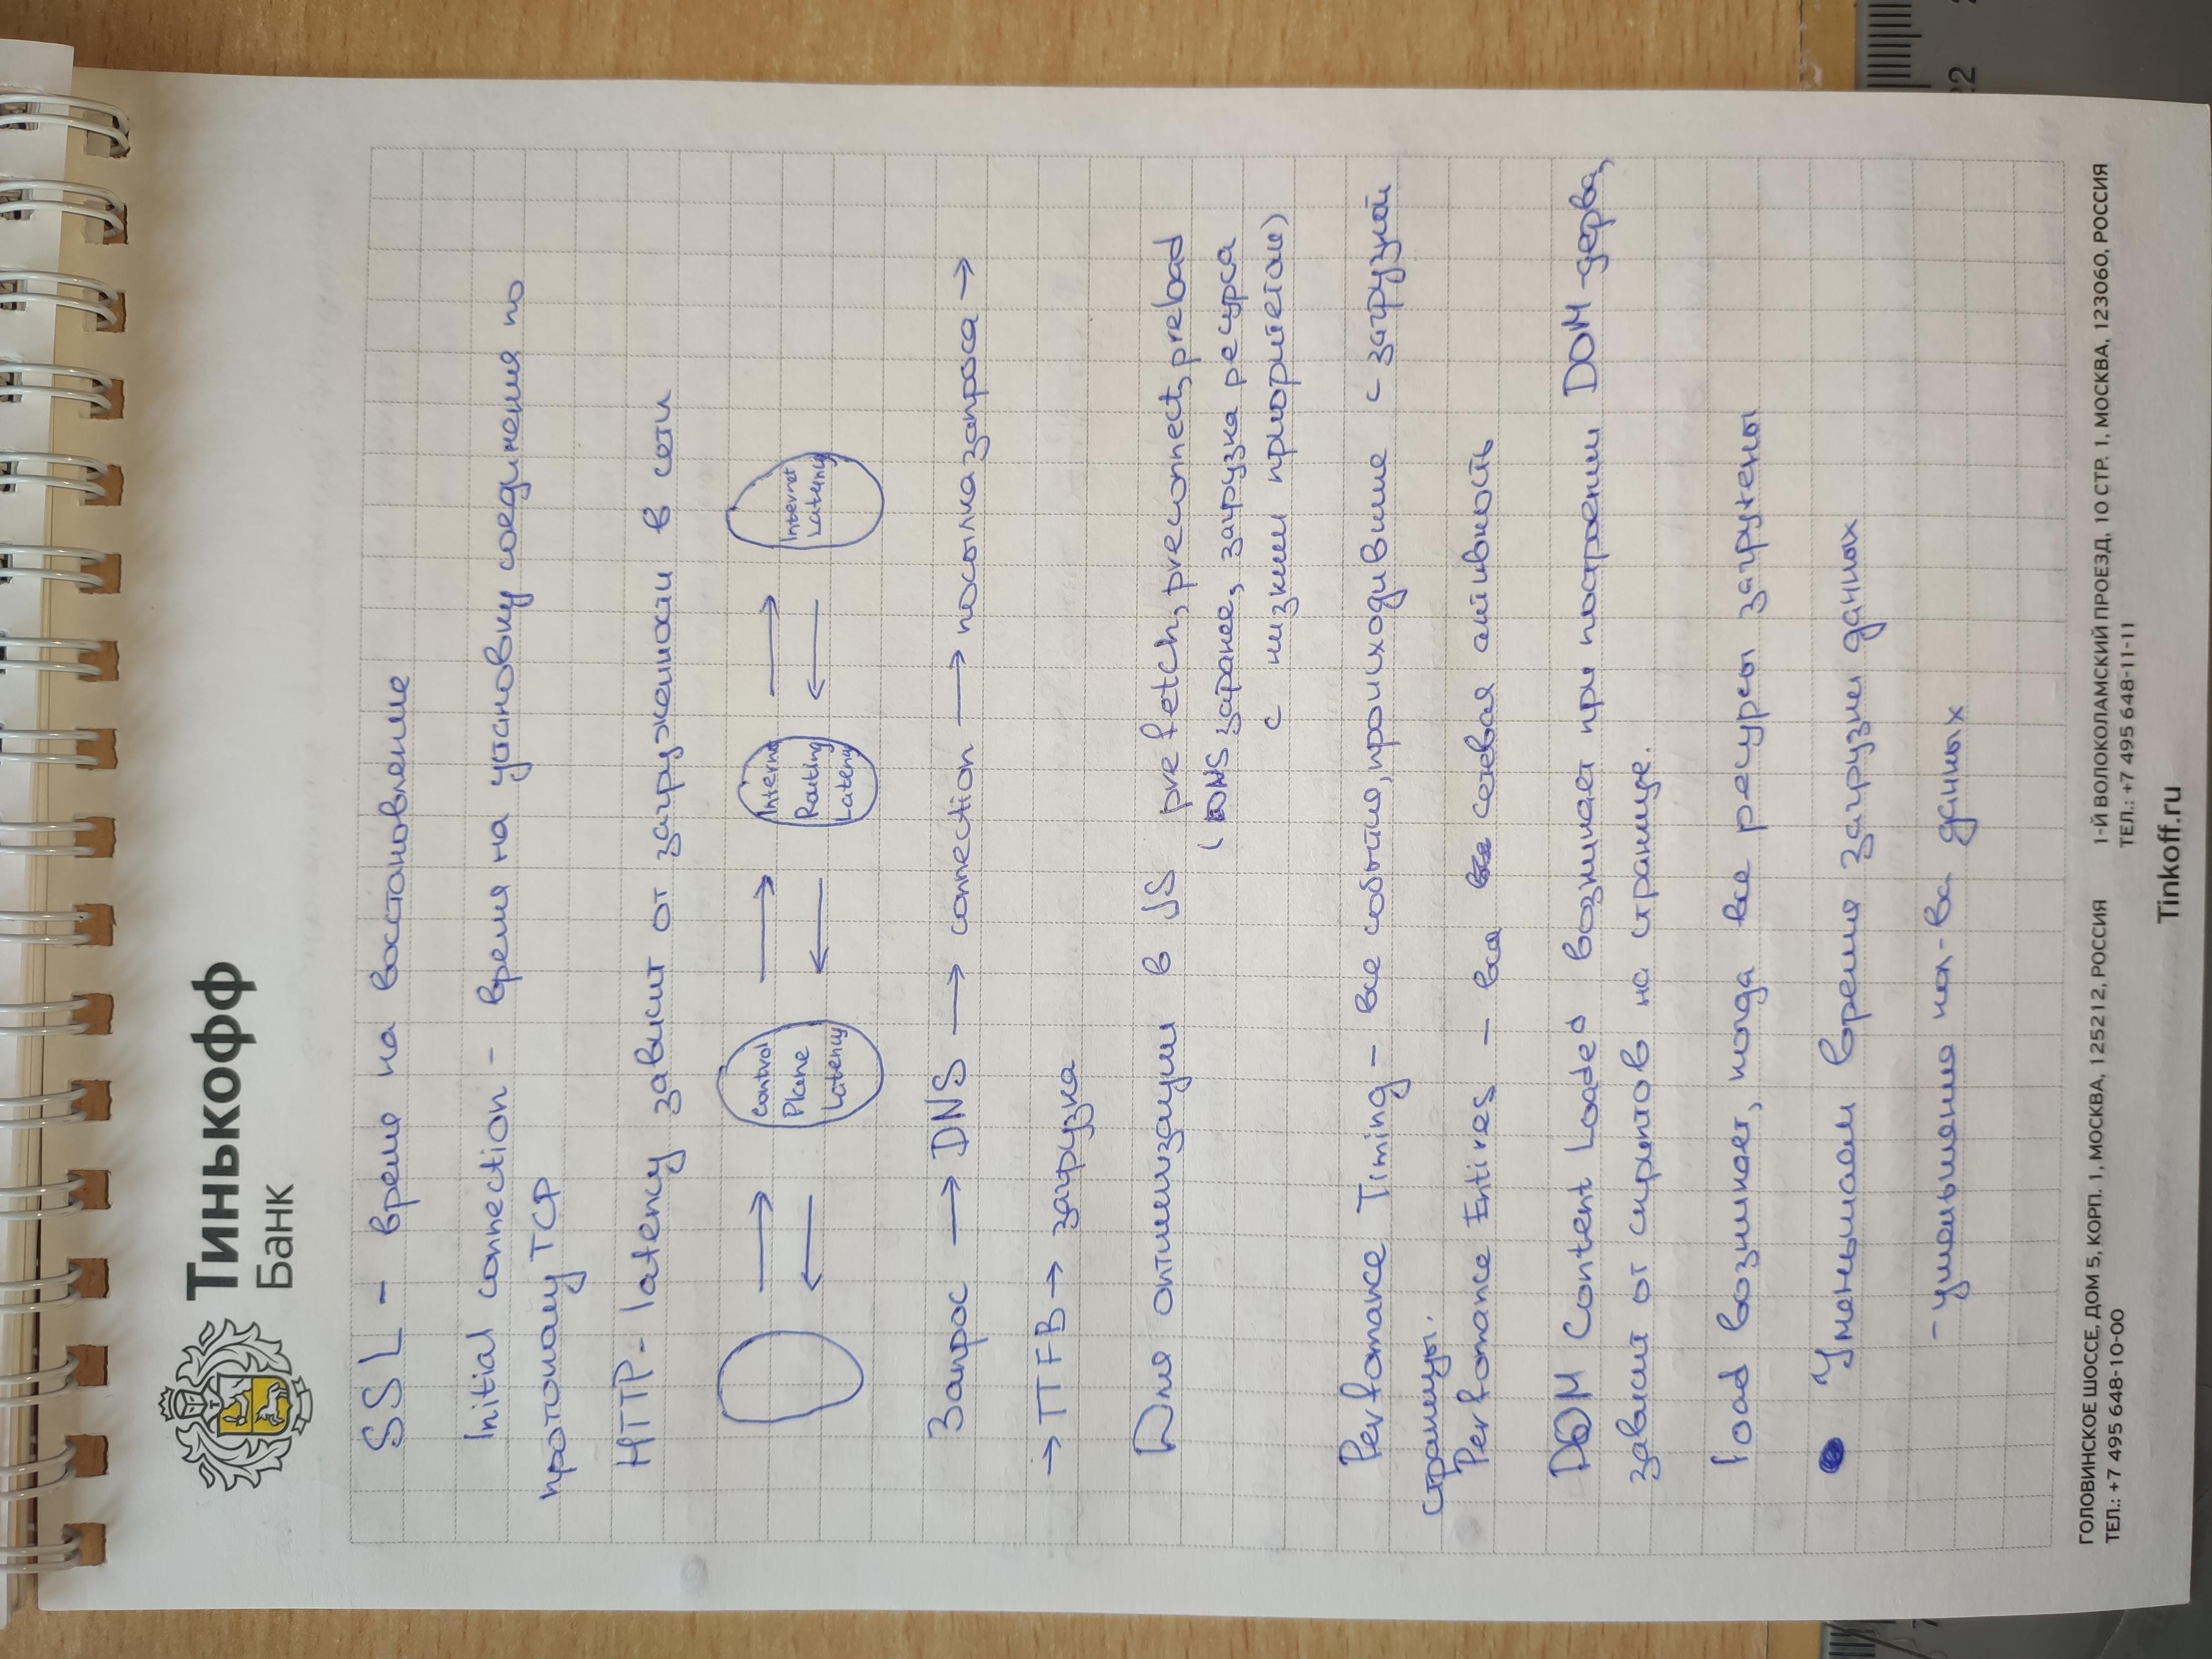 Тинькофф
Банк
SSL - время на восстановление
Initial connection - время на установку соединения по
протоколу TCP
HTTP- latency зависит от загруженности в сети
Control
Plane
Latency
Interne
Routing
Latency
Internet
Latency
Запрос → DNS → connection → посылка запроса →
→ TTFB → загрузка
Для оптимизации в JS prefetch, preconnect, preload
(DNS заранее, загрузка ресурса
с низким приоритетом)
Perfomance Timing - все события, происходившие с загрузкой
страницы.
Perfomance Entires - вся сетевая активность
DOM Content Loaded возникает при построении DOM-дерва,
зависит от скриптов на странице.
load возникает, когда все ресурсы загружены
• Уменьшаем время загрузки данных
- уменьшение кол-ва данных
ГОЛОВИНСКОЕ ШОССЕ, ДОМ 5, КОРП. 1, МОСКВА, 125212, РОССИЯ
ТЕЛ.: +7 495 648-10-00
1-Й ВОЛОКОЛАМСКИЙ ПРОЕЗД, 10 СТР. 1, МОСКВА, 123060, РОССИЯ
ТЕЛ.: +7 495 648-11-11
Tinkoff.ru
22